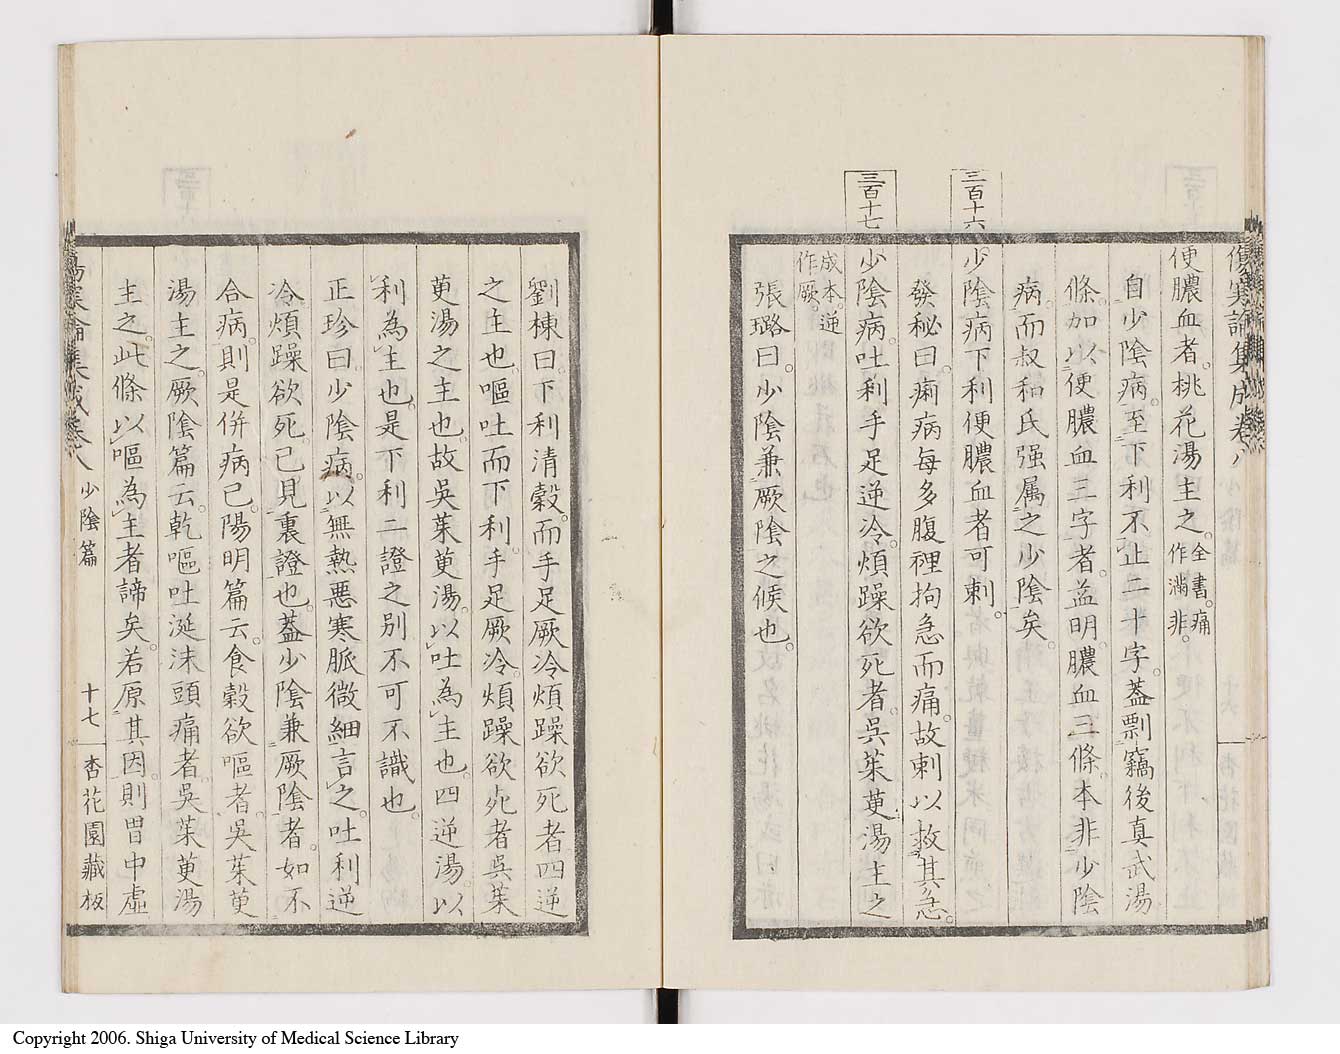 傷寒論集成卷八
便膿血者。桃花湯主之。全書。痛作滿非。
自少陰病。至下利不止二十字。蓋剽竊後真武湯
條。加以便膿血三字者。蓋明膿血三條。本非少陰
病。而叔和氏强属之少陰矣。
三百十六
少陰病下利便膿血者可刺。
發秘曰。痢病每多腹裡拘急而痛。故刺以救其急。
三百十七
少陰病。吐利手足逆冷。煩躁欲死者。吳茱萸湯主之
成本。逆作厥。
張璐曰。少陰兼厥陰之候也。
劉棟曰。下利清穀。而手足厥冷煩躁欲死者。四逆
之主也。嘔吐而下利。手足厥冷。煩躁欲死者吳茱
萸湯之主也。故吳茱萸湯。以吐為主也。四逆湯。以
利為主也。是下利二證之別不可不識也。
正珍曰。少陰病。以無熱悪寒脈微細言之。吐利逆
冷煩躁欲死。已見裏證也。蓋少陰兼厥陰者。如不
合病。則是併病已。陽明篇云。食穀欲嘔者。吳茱萸
湯主之。厥陰篇云。乾嘔吐涎沫頭痛者。吳茱萸湯
主之。此條以嘔為主者諦矣。若原其因。則胃中虛
傷寒論集成卷八 少陰篇 十七 杏花園藏板